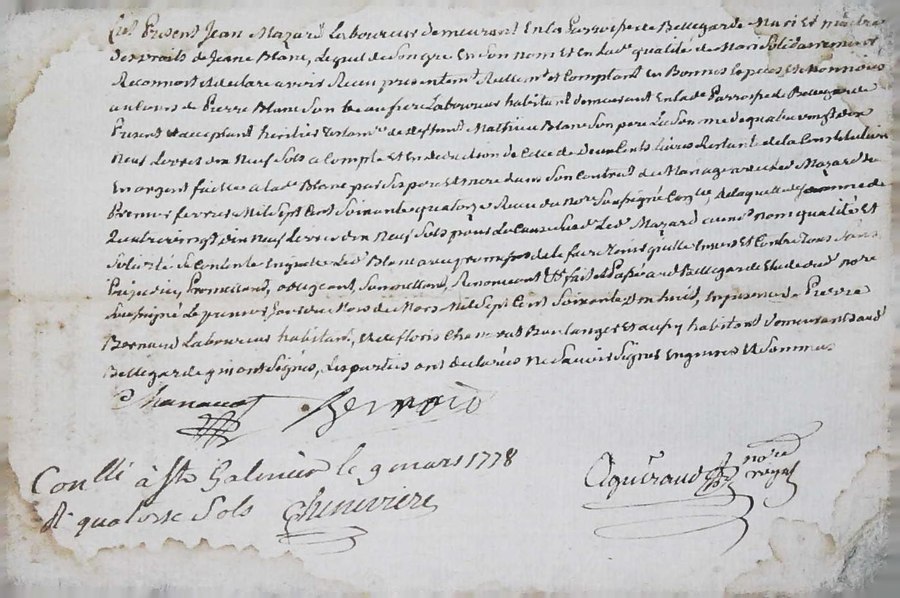 Est Présent Jean Mazard Laboureur demeurant En la Parroisse de Bellegarde Mari Et maître
des droits de Jeane Blanc, Lequel de Son gré En Son nom Et En lad. qualité de Mari Solidairement
Reconnoit et declare avoir Recu présentemt. Réellemt. et Comptant En Bonnes Espèces Et Monnoies
de Pierre Blanc Son Beaufrere Laboureur habitant demeurant En lad. Parroisse de Bellegarde
Présent et acceptant héritier testamre. de deffunt Mathieu Blanc Son pere La Somme de quatrevingt dix
Neuf Livres dix Neuf Sols a Compte Et En deduction de Celle de Deux Cents livres Restante de la Constitution
En argent faitte a lad. Blanc par Ses pere Et mere dans Son Contrat de Mariage avec led. Mazard du
Premier fevrier Mil Sept Cent Soixante quatorze Recu du nore. Soussigné de laquelle Somme de
Quatrevingt dix Neuf Livres dix Neuf Sols pour La Cause Susd. Led. Mazard nom qualité Et
Solidité Se Contente En quitte Led. Blanc avec promesse de le faire tenir quitte Envers Et Contre tous Sans
Préjudice, Promettant, obligeant, Soumettant, Renoncant fait et Passé aud. Bellegarde Etude dud. nore.
Soussigné Le premier Jour du Mois de Mars Mil Sept Cent Soixante Dix huit, En présence de Pierre
Bernard Laboureur habitant, et de floris Chanavat Boulanger Et aussy habitant demeurants aud.
Bellegarde qui ont Signés, Les parties ont déclarées ne Savoir Signer Enquises Et Sommées
Chanavat Bernard
Con llé à St. Galmier le 9 mars 1778
Rt. quatorse Sols Chenevière
nore. royal